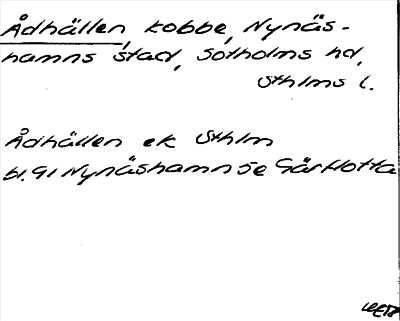 Ådhällen, kobbe, Nynäs-
hamns stad, Sotholms hd,
Sthlms l.
Ådhällen ek Sthlm
bl. 91 Nynäshamn SE Gårflotta